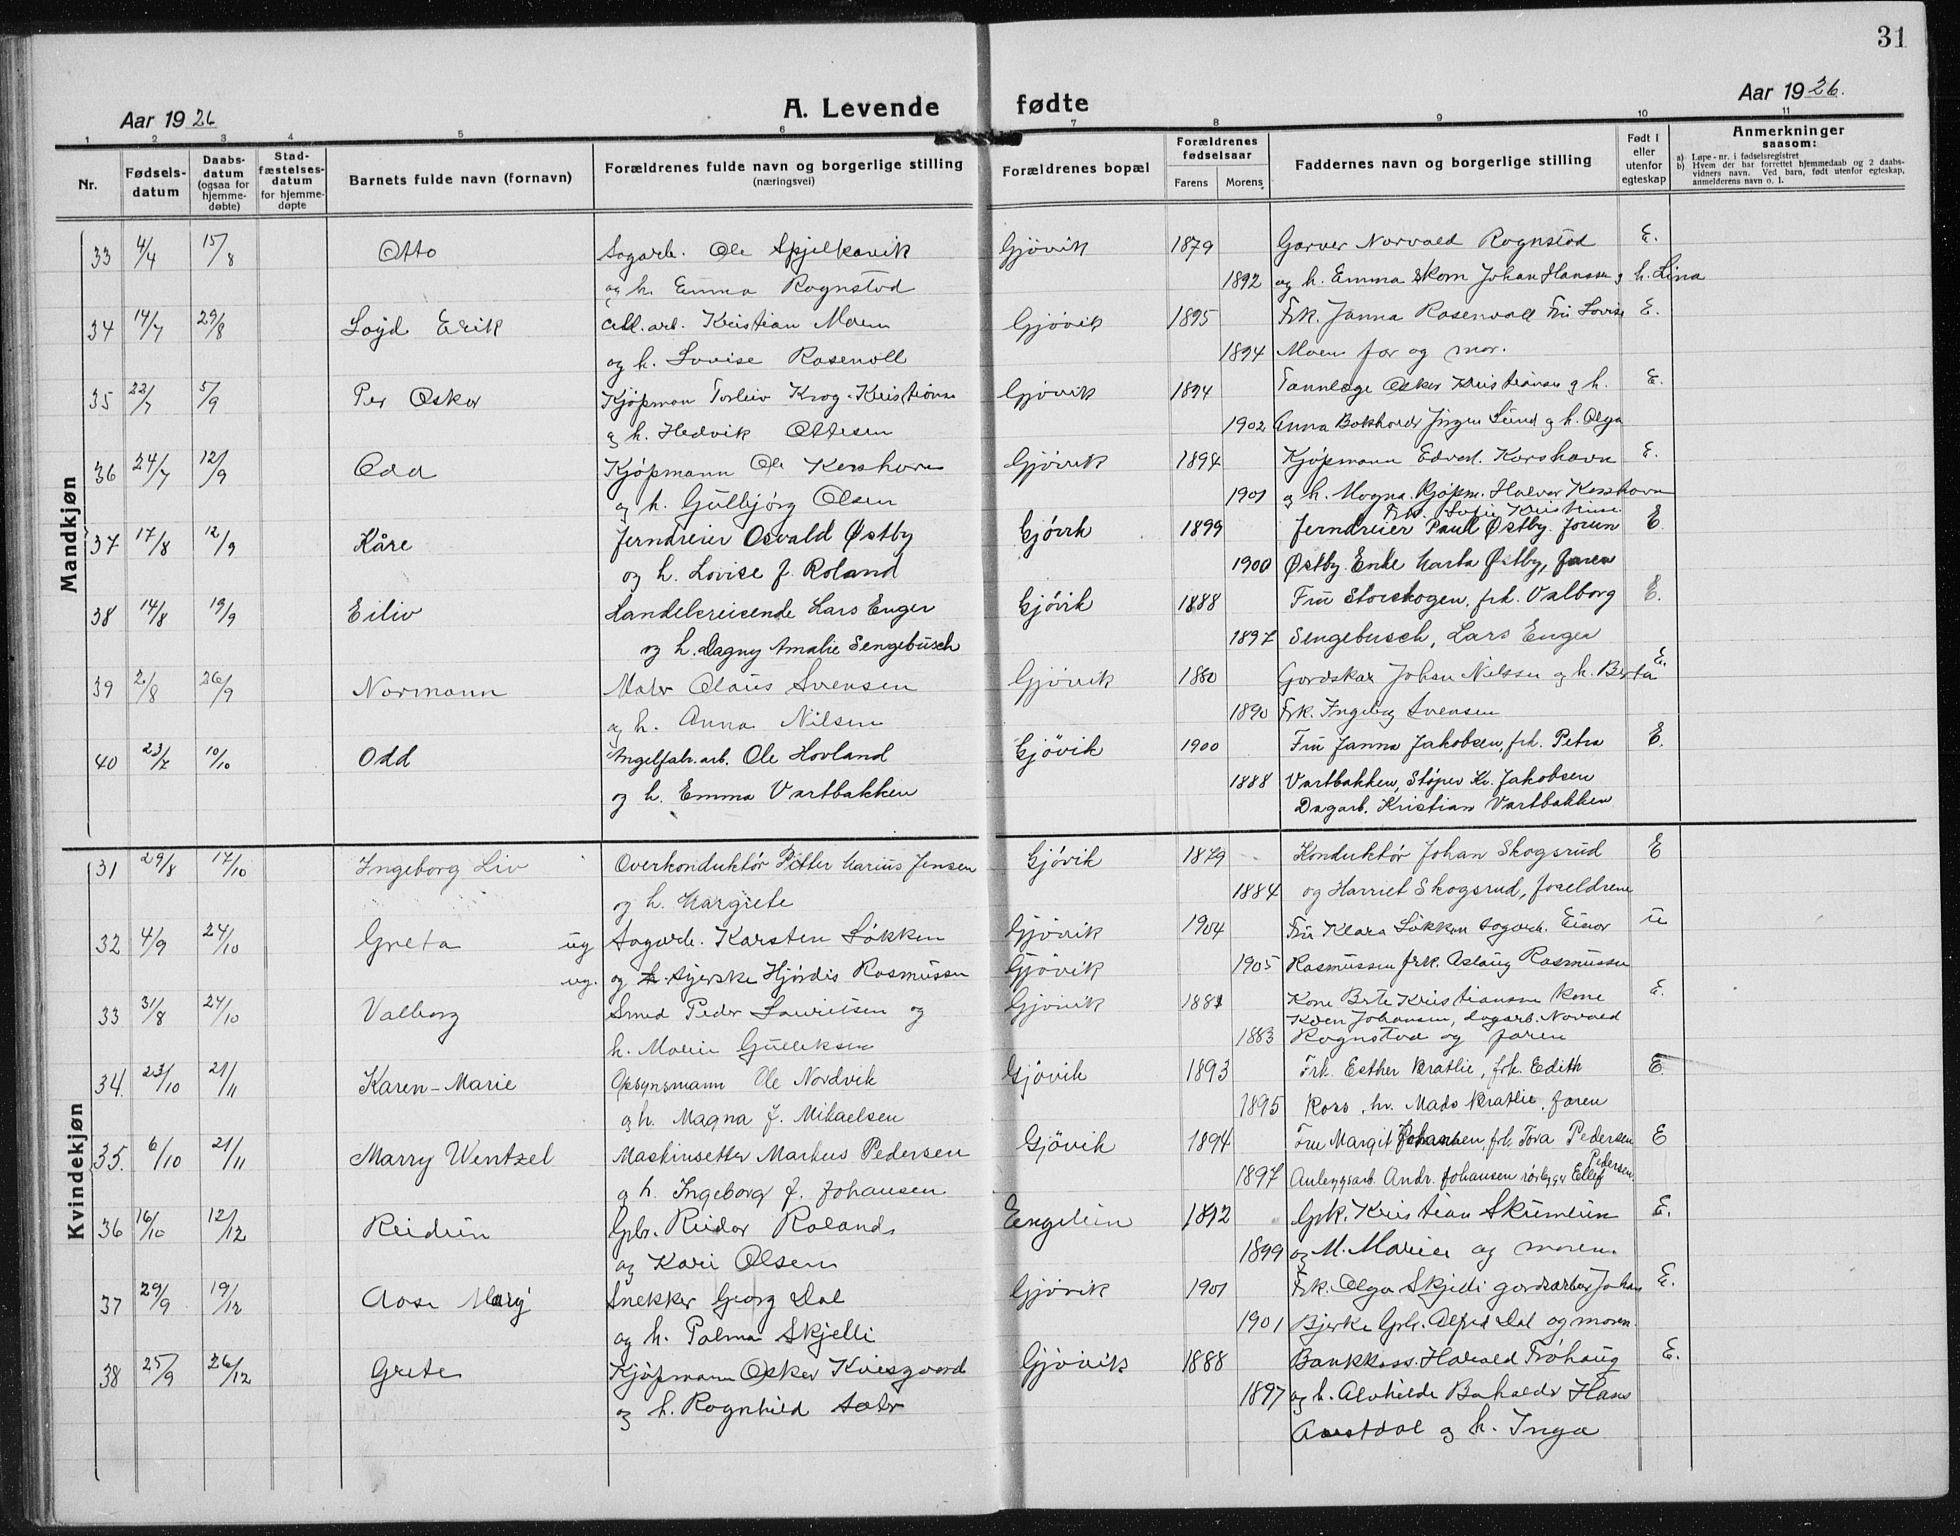 31
Aar 1926
A. Levende fødte
Aar 1926.
1 2 3 4 5 6 7 8 9 10 11
Nr.
Fødsels-
datum
Daabs-
datum
(ogsaa for
hjemme-
døbte)
Stad-
fæstelses-
datum
for hjemme-
døpte
Barnets fulde navn (fornavn)
Forældrenes fulde navn og borgerlige stilling
(næringsvei)
Forældrenes bopæl
Forældrenes
fødselsaar
Farens Morens
Faddernes navn og borgerlige stilling
Født i
eller
utenfor
egteskap
Anmerkninger
saasom:
a) Løpe-nr. i fødselsregistret
b) Hvem der har forrettet hjemmedaab og 2 daabs-
vidners navn. Ved barn, født utenfor egteskap,
anmelderens navn o. l.
Mandkjøn
33 4/4 15/8 Otto Sagarb. Ole Spjelkavik Gjøvik 1879 Garver Norvald Rognstad E.
og h. Emma Rognstad 1892 og h. Emma Johan Hanssen g h. Lina
34 14/7 29/8 Loyd Erik Kristian Moen Gjøvik 1895 Frk. Janna Rosenvoll Fru Lovise E.
og h. Lovise Rosenvoll 1894 Moen far og mor.
35 22/7 5/9 Per Oskar Kjøpman Torleiv Krog-Kristiansen Gjøvik 1894 Tannlæge Oskar Kristiansen g h. E.
og h. Hedvik Ottesen 1902 Anna Bokholder Jørgen Lund g h. Olga
36 24/7 12/9 Odd Kjøpmann Ole Korshavn Gjøvik 1894 Kjøpmann Edvard Korshavn E.
og h. Gulbjørg Olsen 1901 g h. Magna. Kjøpm. Halvor Korshavn
Frk. Sofie Kristiansen
37 17/8 12/9 Kåre Jerndreier Osvald Østby Gjøvik 1899 Jerndreier Paul Østby. Jorun E
og h. Lovise f. Roland 1900 Østby. Enke Marta Østby, faren
38 14/8 19/9 Eiliv Handelsreisende Lars Enger Gjøvik 1888 Fru Storskogen, frk. Valborg E.
og h. Dagny Amalie Sengebusch 1897 Sengebusch, Lars Enger
39 2/8 26/9 Normann Maler Olaus Svensen Gjøvik 1880 Gårdskar Johan Nilssen og h. Berta E.
og h. Anna Nilsen 1890 Frk. Ingeborg Svensen
40 23/7 10/10 Odd Angelfabr.arb. Ole Hovland Gjøvik 1900 Fru Janna Jakobsen, frk. Petra E.
og h. Emma Vartbakken 1888 Vartbakken, Støper Kr. Jakobsen
Dagarb. Kristian Vartbakken
Kvindekjøn
31 29/8 17/10 Ingeborg Liv Overkonduktør Petter Marius Jensen Gjøvik 1879 Konduktør Johan Skogsrud E
og h. Margrete 1884 og Harriet Skogsrud, foreldrene
32 4/9 24/10 Greta ug Sagarb. Karsten Løkken Gjøvik 1904 Fru Klara Løkken sagarb. Einar u
ug. og Syerske Hjørdis Rasmussen Gjøvik 1905 Rasmussen frk. Aslaug Rasmussen
33 31/8 24/10 Valborg Smed Peder Lauritsen og Gjøvik 1881 Kone Berte Kristiansen kone E.
Johansen, dagarb. Norvald
h. Marie Gulleksen 1883 Rognstad og faren
34. 23/10 21/11 Karen-Marie Opsynsmann Ole Nordvik Gjøvik 1893 Frk. Esther Bratlie, frk. Edith E.
og h. Magna f. Mikaelsen 1895 Ross, hr. Mads Bratlie, faren
35. 6/10 21/11 Marry Wentzel Maskinsetter Markus Pedersen Gjøvik 1894 Fru Margit Johansen, frk. Tora Pedersen E
g h. Ingeborg f. Johansen 1897 Anleggsarb. Andr. Johansen rørlegger Edlif Pedersen
36 16/10 12/12 Reidun Gbr. Reidar Roland Engelien 1892 Gbr. Kristian Skumlien E.
og Kari Olsen 1899 og M. Marie og moren
37 29/9 19/12 Aase Mary Snekker Georg Dal Gjøvik 1901 Frk. Olga Skjelli gardsarber Johan E.
og h. Palma Skjelli 1901 Bjerke Gbr. Alfred Dal og moren.
38 25/9 26/12 Grete Kjøpmann Oskar Kviesgaard Gjøvik 1888 Bankkass. Harald Trøhaug E.
og h. Ragnhild 1897 og h. Alvhilde Hans
Aarstdal og h. Inga